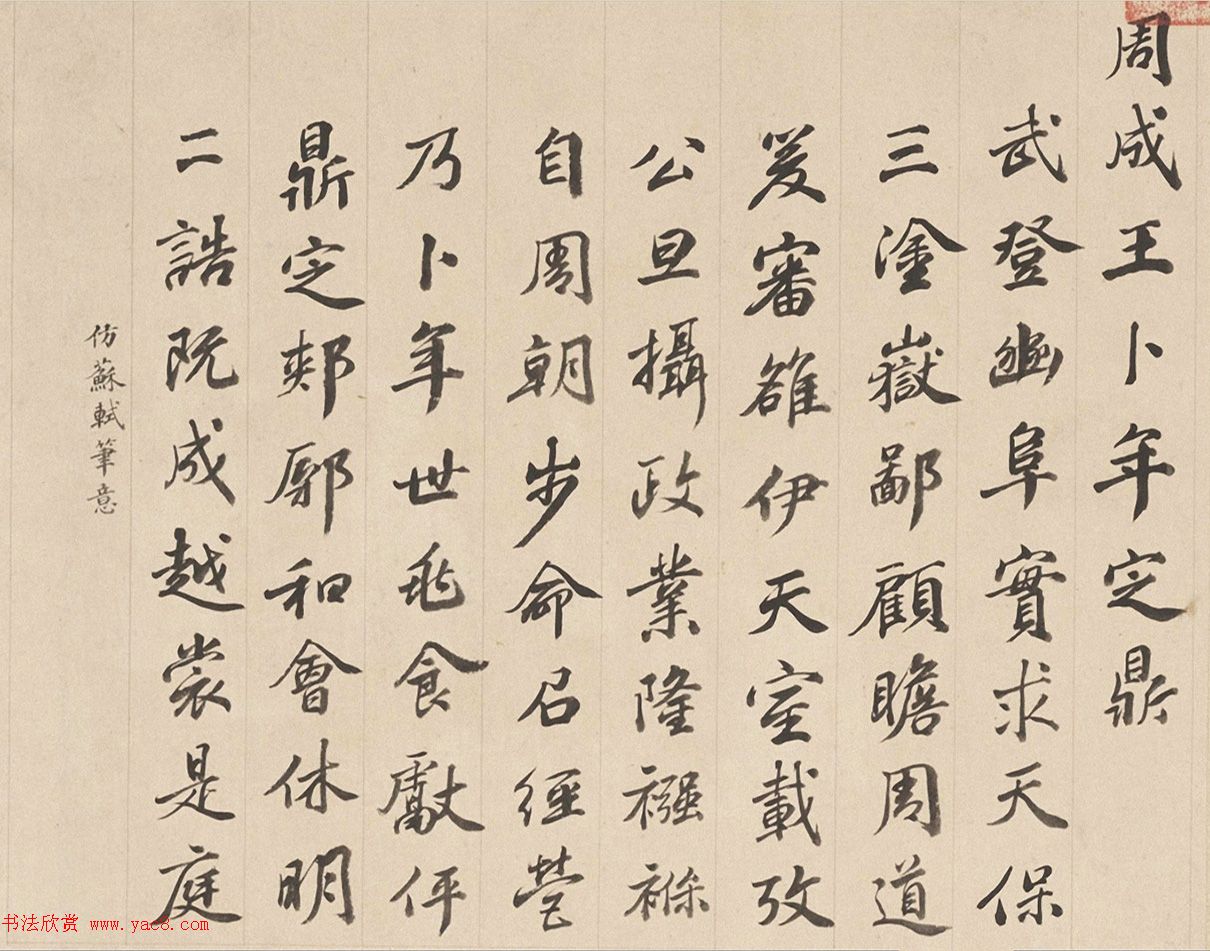 周成王卜年定鼎
武登豳阜實求天保
三塗嶽鄙顧瞻周道
爰審雒伊天室載攷
公旦攝政業隆襁褓
自周朝步命召經營
乃卜年世兆食獻伻
鼎定郟鄏和會休明
二誥既成越裳是庭
仿蘇軾筆意
书法欣赏 www.yac8.com